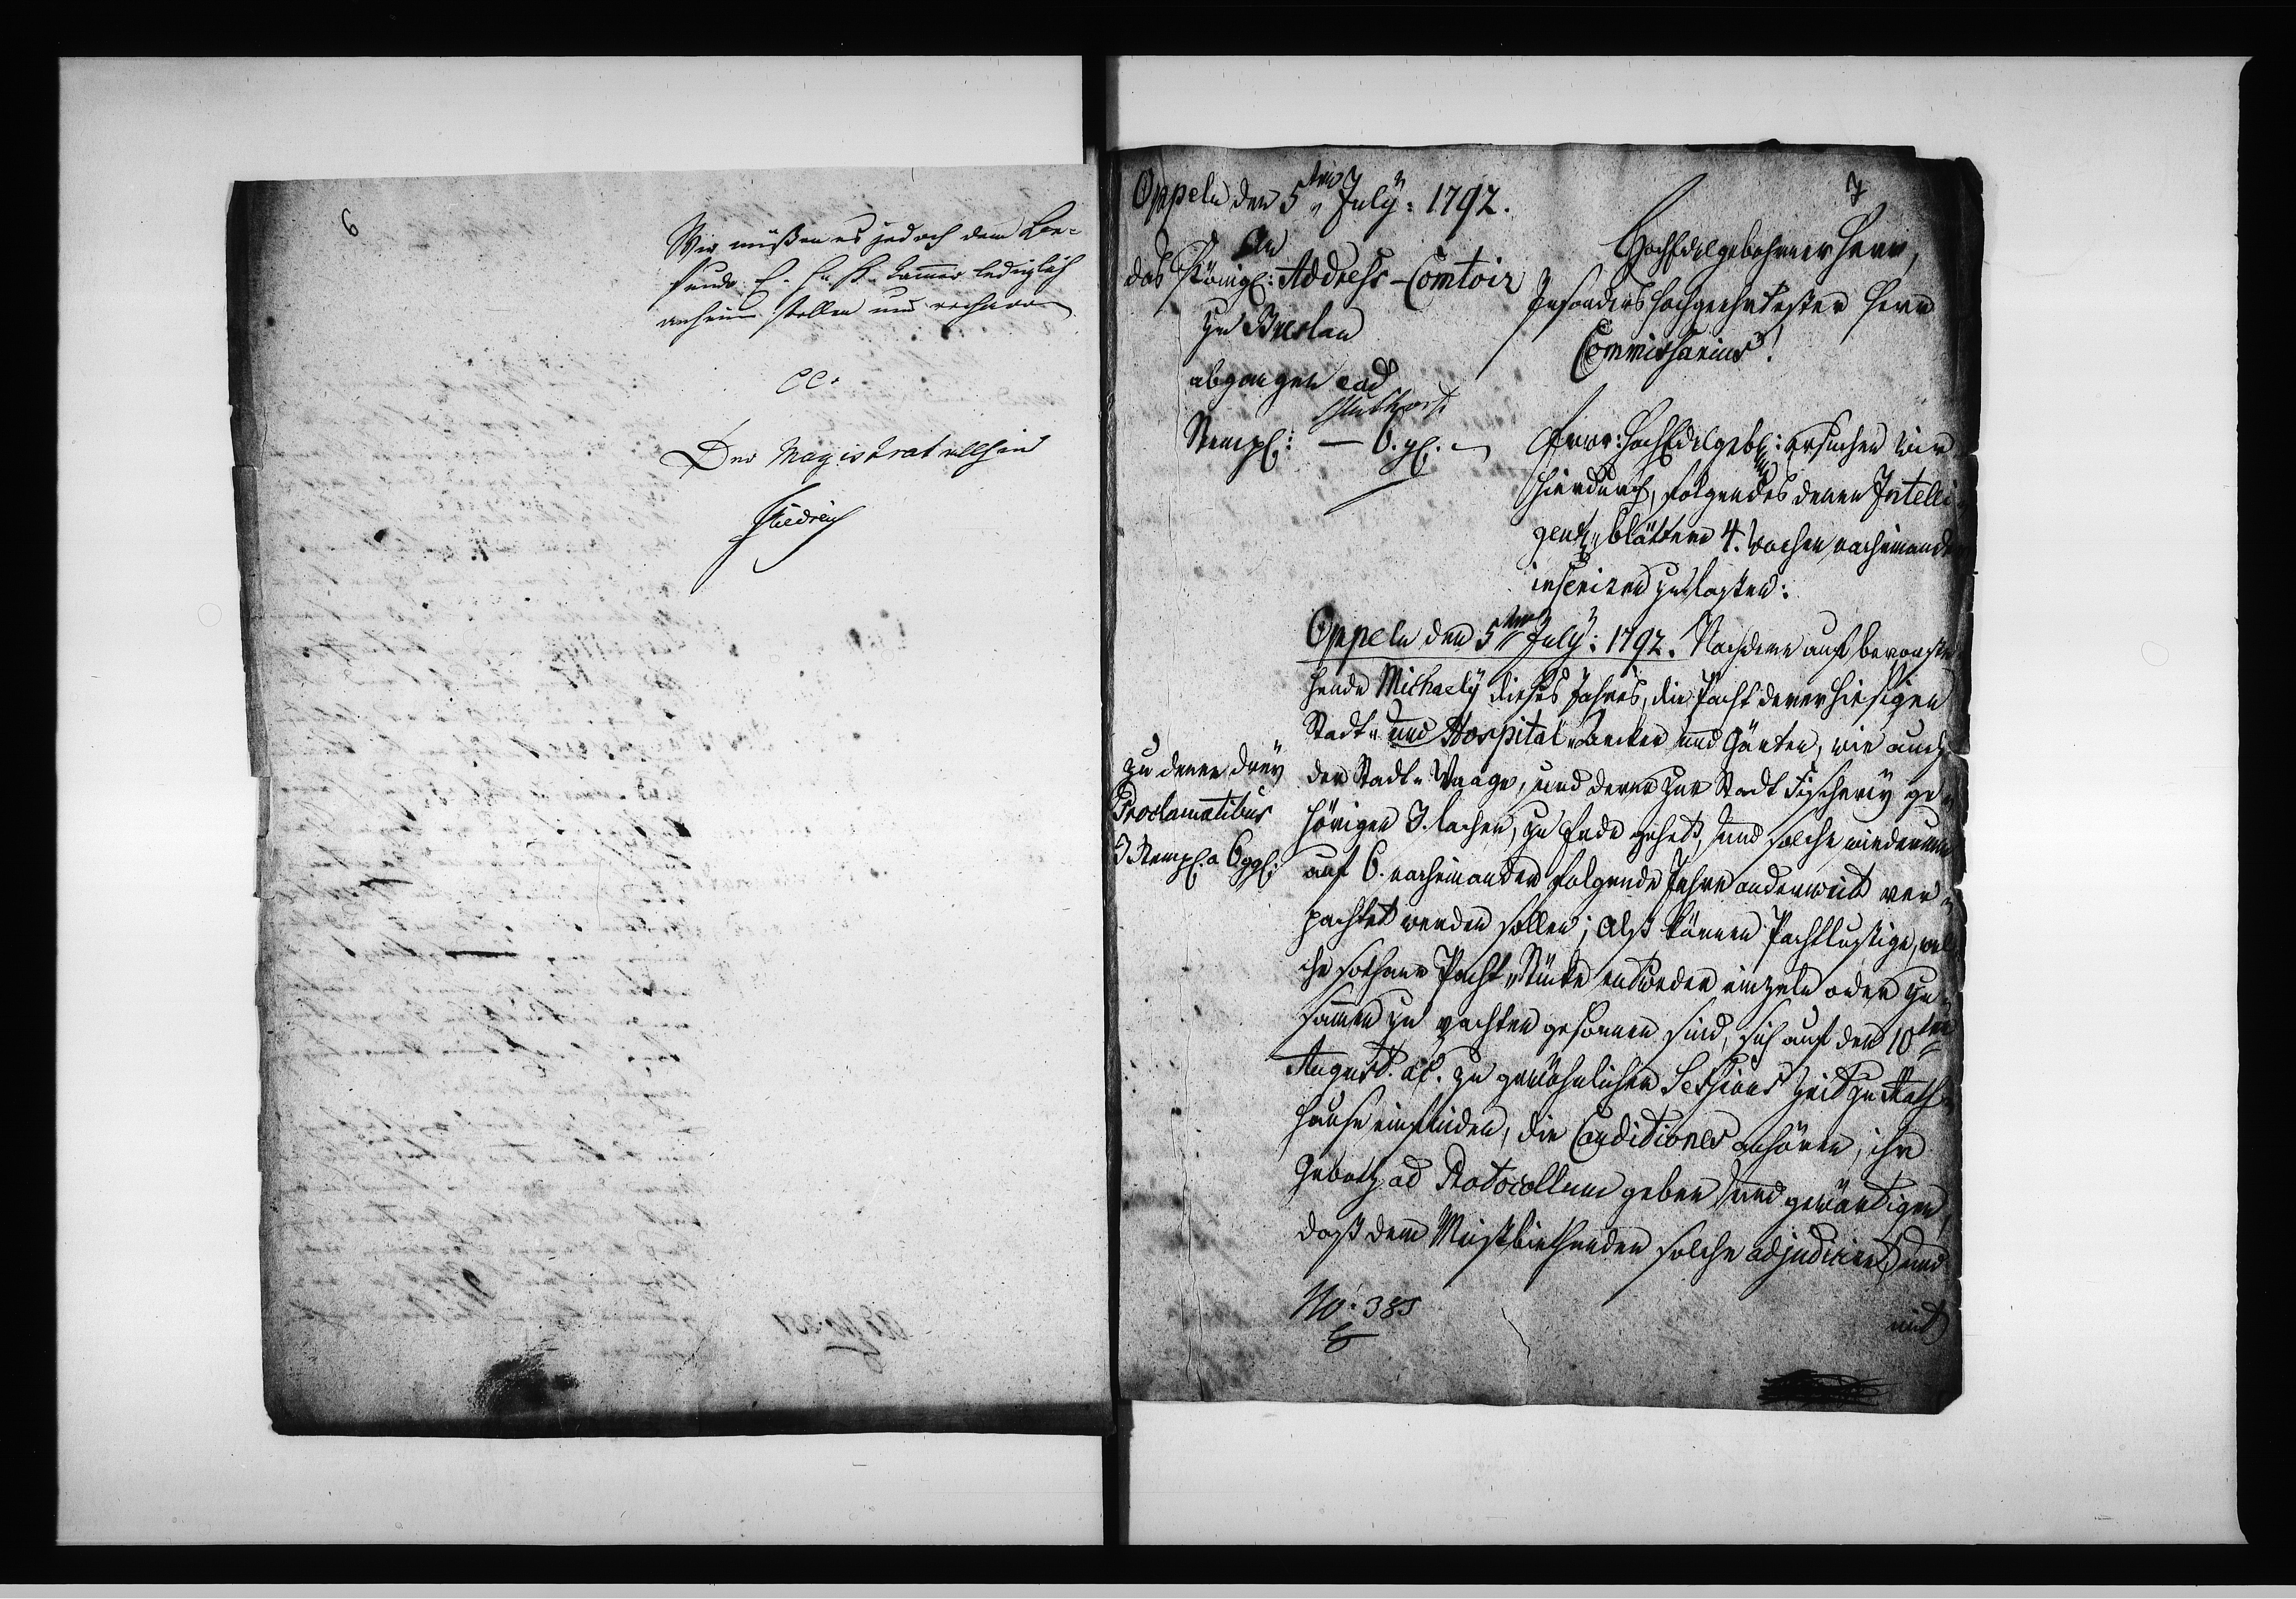 6
Wir müßen es jedoch dem Be-
funde E. K. Cammer lediglich
anheim stellen und verharren
CC.
Der Magistrat allhier
Friedrich
7
Oppeln den 5ten July: 1792.
An
das Königl: Address-Comtoir
zu Breslau
abgangen ead
Stempl: — 6. gl.
Hochedelgebohrner Herr,
Insonders hochgeehrtester Herr
Commissarius!
Ewr: Hochedelgeb: ersuchen wir
hierdurch, folgendes denen Intelli-
gentz blättern 4. Wochen nacheinander
inseriren zu laßen:
Oppeln den 5ten July: 1792. Nachdem auf bevorste-
hende Michaely dieses Jahres, die Pacht derer hiesigen
Stadt- und Hospital-Aecker und Gärten, wie auch
der Stadt-Waage, und derer zur Stadt Fischerey ge-
hörigen 3. Lachen, zu Ende gehet, und solche wiederum
auf 6. nacheinander folgende Jahre anderweit ver-
pachtet werden sollen; Alß können Pachtlustige, wel-
che sothane Pacht-Stücke entweder einzeln oder zu-
samen zu pachten gesonnen sind, sich auf den 10ten
August. ac. zu gewöhnlicher Sessions Zeit zu Rath-
hause einfinden, die Conditiones anhören, ihr
Geboth ad Protocollum geben und gewärtigen,
daß dem Meistbiethenden solche adjudiciret, und
mit
zu denen drey
Proclamatibus
3 Stempl. a 6 ggl.
No: 385